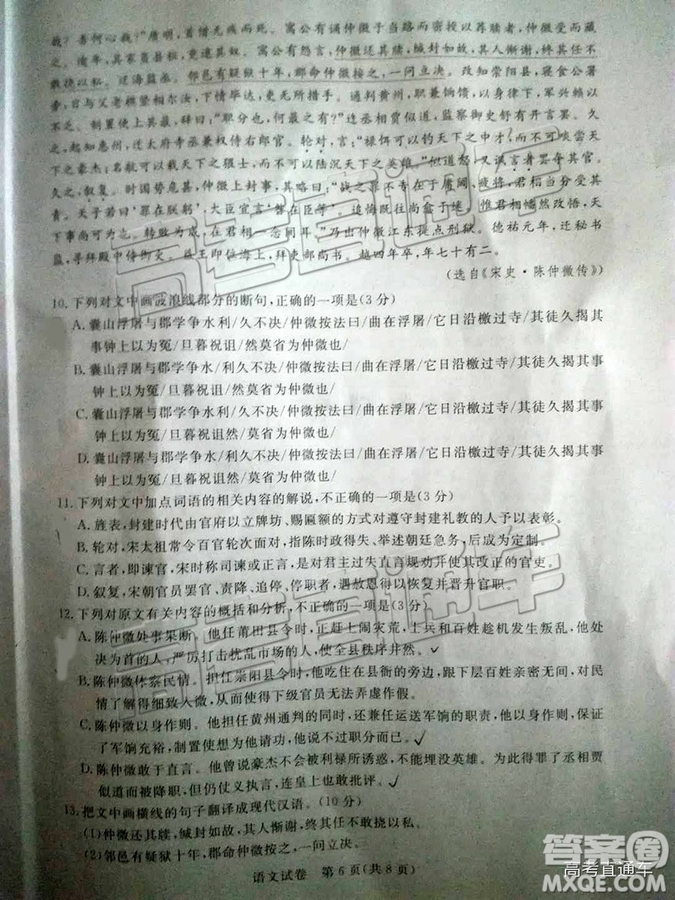 哉？吾何心哉？”质明，首僧无疾而死。寓公有诵仲微于当路而密授以荐牍者，仲微受而藏
之。逾年，其家负县租，竟逮其奴。寓公有怨言，仲微还其牍，缄封如故，其人惭谢，终其任不
敢挠以私。迁海盐丞。邻邑有疑狱十年，郡命仲微按之，一问立决。改知崇阳县，寝食公署
旁，日与父老樵竖相尔汝，下情毕达，吏无所措手。通判黄州，职兼饷馈，以身律下，军兴赖以
不乏。制置使上其最，辞曰：“职分也，何最之有？”迁丞相贾似道，监察御史舒有开言罢。久
之，起知惠州，迁太府寺丞兼权侍右郎官。轮对，言：“禄饵可以钓天下之中才，而不可以啖尝
天下之豪杰；名航可以载天下之猥士，而不可以陆沉天下之英雄。”似道怒，又讽言者罢夺其官。
久之，叙复。时国势危甚，仲微上封事，其略曰：“战之罪不专在于庸阃、疲将，君相当分受其
责。天子若曰‘罪在朕躬’，大臣宜言‘咎在臣等’。追悔既往尚盍于迪，惟君相幡然改悟，天
下事尚可为也，转败为成，在君相一念间耳”乃出仲微江东提点刑狱。德祐元年，迁秘书
监，寻拜殿中侍御史。益王即位海上，拜吏部尚书。越四年卒，年七十有二。
（选自《宋史·陈仲微传》）
10.下列对文中画波浪线部分的断句，正确的一项是(3 分)
A.囊山浮屠与郡学争水利/久不决/仲微按法曰/曲在浮屠/它日沿檄过寺/其徒久揭其
事钟上以为冤/旦暮祝诅/然莫省为仲微也/
B.囊山浮屠与郡学争水/利久不决/仲微按法曰/曲在浮屠/它日沿檄过寺/其徒久揭其事
钟上以为冤/旦暮祝诅/然莫省为仲微也/
C.囊山浮屠与郡学争水利/久不决/仲微按法曰/曲在浮屠/它日沿檄过寺/其徒久揭其事
钟上以为冤/旦暮祝诅然/莫省为仲微也/
D.囊山浮屠与郡学争水/利久不决/仲微按法曰/曲在浮屠/它日沿檄过寺/其徒久揭其事
钟上以为冤/旦暮祝诅然/莫省为仲微也/
11.下列对文中加点词语的相关内容的解说，不正确的一项是(3 分)
A.旌表，封建时代由官府以立牌坊、赐匾额的方式对遵守封建礼教的人予以表彰。
B.轮对，宋太祖常令百官轮次面对，指陈时政得失、举述朝廷急务，后成为定制。
C.言者，即谏官，宋时称司谏或正言，是对君主过失直言规劝并使其改正的官员。
D.叙复，宋朝官员罢官、责降、追停、停职者，遇放恩得以恢复并晋升官职。
12.下列对原文有关内容的概括和分析，不正确的一项是(3 分)
A.陈仲微处事果断。他任莆田县令时，正赶上闹灾荒，士兵和百姓趁机发生叛乱，他处
决为首的人，严厉打击扰乱市场的人，使全县秩序井然。
B.陈仲微体察民情。担任崇阳县令时，他吃住在县衙的旁边，跟下层百姓亲密无间，对民
情了解得细致入微，以致使得下级官员无法弄虚作假。
C.陈仲微以身作则。他担任黄州通判的同时，还兼任运送军饷的职责，他以身作则，保证
了军饷充裕，制置使为他请功，他说不过职分而已。
D.陈仲微敢于直言。他曾说豪杰不会被利禄所诱惑，不能埋没英雄。为此得罪了丞相贾
似道而被降职，但仍仗义执言，连皇上也敢批评。
13.把文中画横线的句子翻译成现代汉语。(10 分)
(1)仲微还其牍，缄封如故，其人惭谢，终其任不敢挠以私。
(2)邻邑有疑狱十年，郡命仲微按之，一问立决。
语文试卷 第 6 页(共 8 页)
高考直通车
高考直通车
答案圈
高考直通车
MXQE.COM